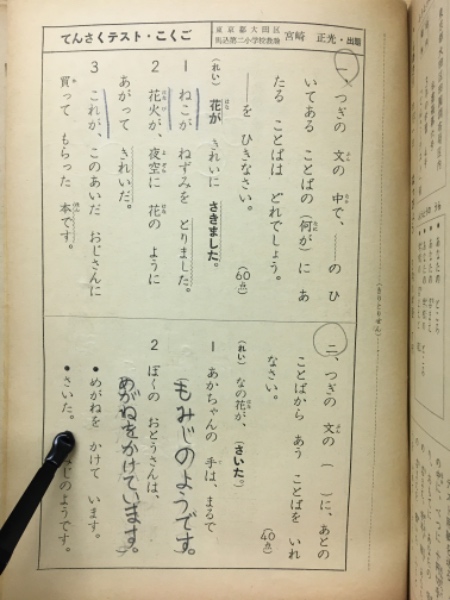 てんさくテスト・こくご
東京都大田区
馬込第二小学校教諭
宮崎 正光・出題
一、つぎの 文の 中で、﹏﹏の ひ
いてある ことばの(何が)に あ
たる ことばは どれでしょう。
――を ひきなさい。 (60点)
(れい) 花が きれいに さきました。
1 ねこが ねずみを とりました。
2 花火が、夜空に 花の ように
あがって きれいだ。
3 これが、このあいだ おじさんに
買って もらった 本です。
(きりとりせん)
二、つぎの 文の ( )に、あとの
ことばから あう ことばを いれ
なさい。 (40点)
(れい) なの花が、(さいた。)
1 あかちゃんの 手は、まるで
(もみじのようです。)
2 ぼくの おとうさんは、
(めがねをかけています。)
●めがねを かけて います。
●さいた。
じのようです。